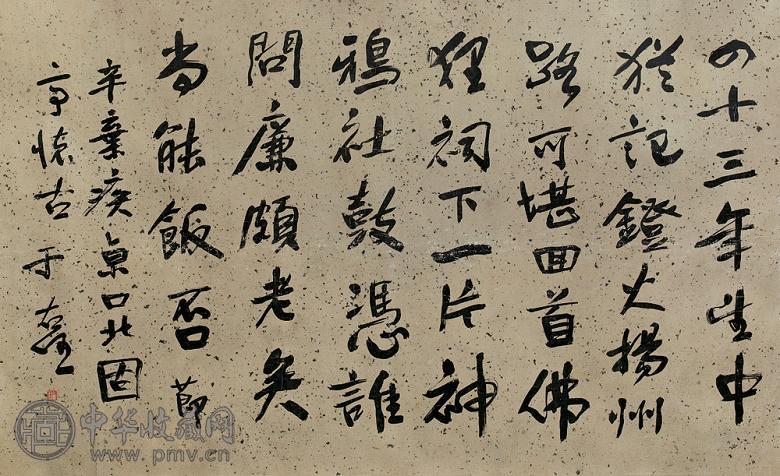 四十三年望中
猶記鐙火揚州
路可堪回首佛
狸祠下一片神
鴉社鼓憑誰
問廉頗老矣
尚能飯否 節
辛棄疾京口北固
亭懷古 于
中华收藏网
www.pmv.cn